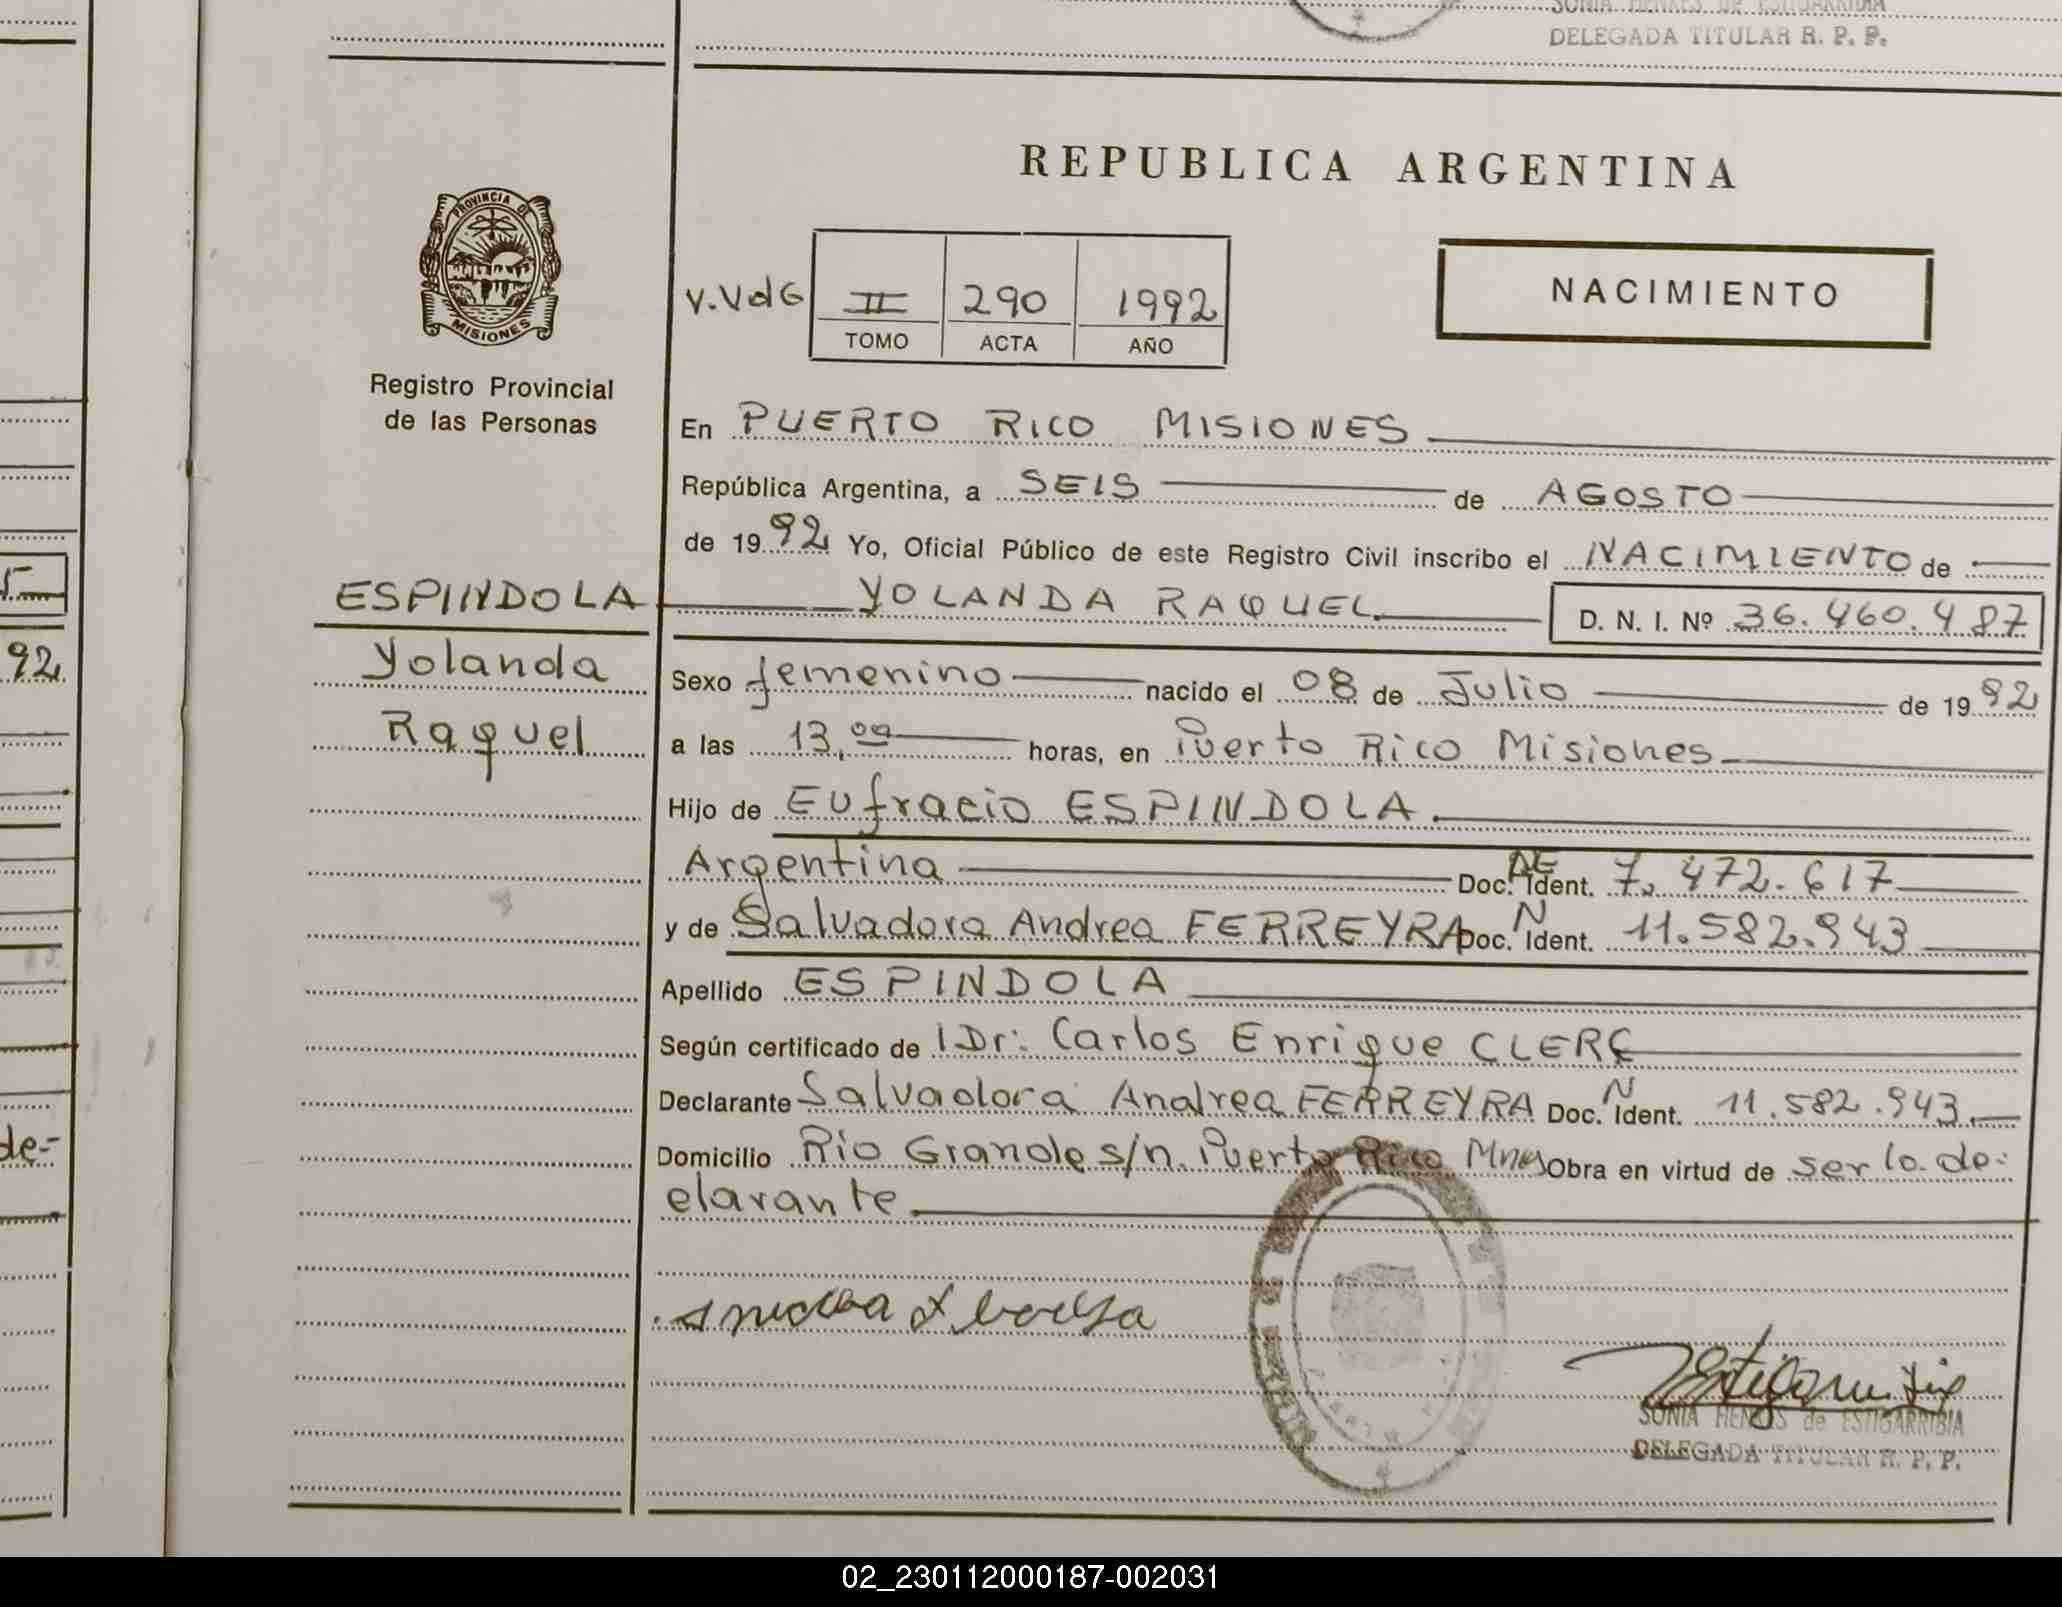 SONIA HENKES DE ESTIGARRIBIA
DELEGADA TITULAR R. P. P.
REPUBLICA ARGENTINA
PROVINCIA DE
MISIONES
Registro Provincial
de las Personas
V.VdG II 290 1992
TOMO ACTA AÑO
NACIMIENTO
En PUERTO RICO MISIONES
República Argentina, a SEIS de AGOSTO
de 1992 Yo, Oficial Público de este Registro Civil inscribo el NACIMIENTO de
ESPINDOLA YOLANDA RAQUEL D. N. I. Nº 36.460.487
Yolanda
Raquel
Sexo femenino nacido el 08 de Julio de 1992
a las 13,00 horas, en Puerto Rico Misiones
Hijo de Eufracio ESPINDOLA
Argentina Doc. Ident. DE 7.472.617
y de Salvadora Andrea FERREYRA Doc. N Ident. 11.582.943
Apellido ESPINDOLA
Según certificado de Dr: Carlos Enrique CLERC
Declarante Salvadora Andrea FERREYRA Doc. N Ident. 11.582.943
Domicilio Río Grande s/n. Puerto Rico Mnes Obra en virtud de ser la de-
clarante
SONIA HENKES de ESTIGARRIBIA
DELEGADA TITULAR R. P. P.
92
de-
02_230112000187-002031